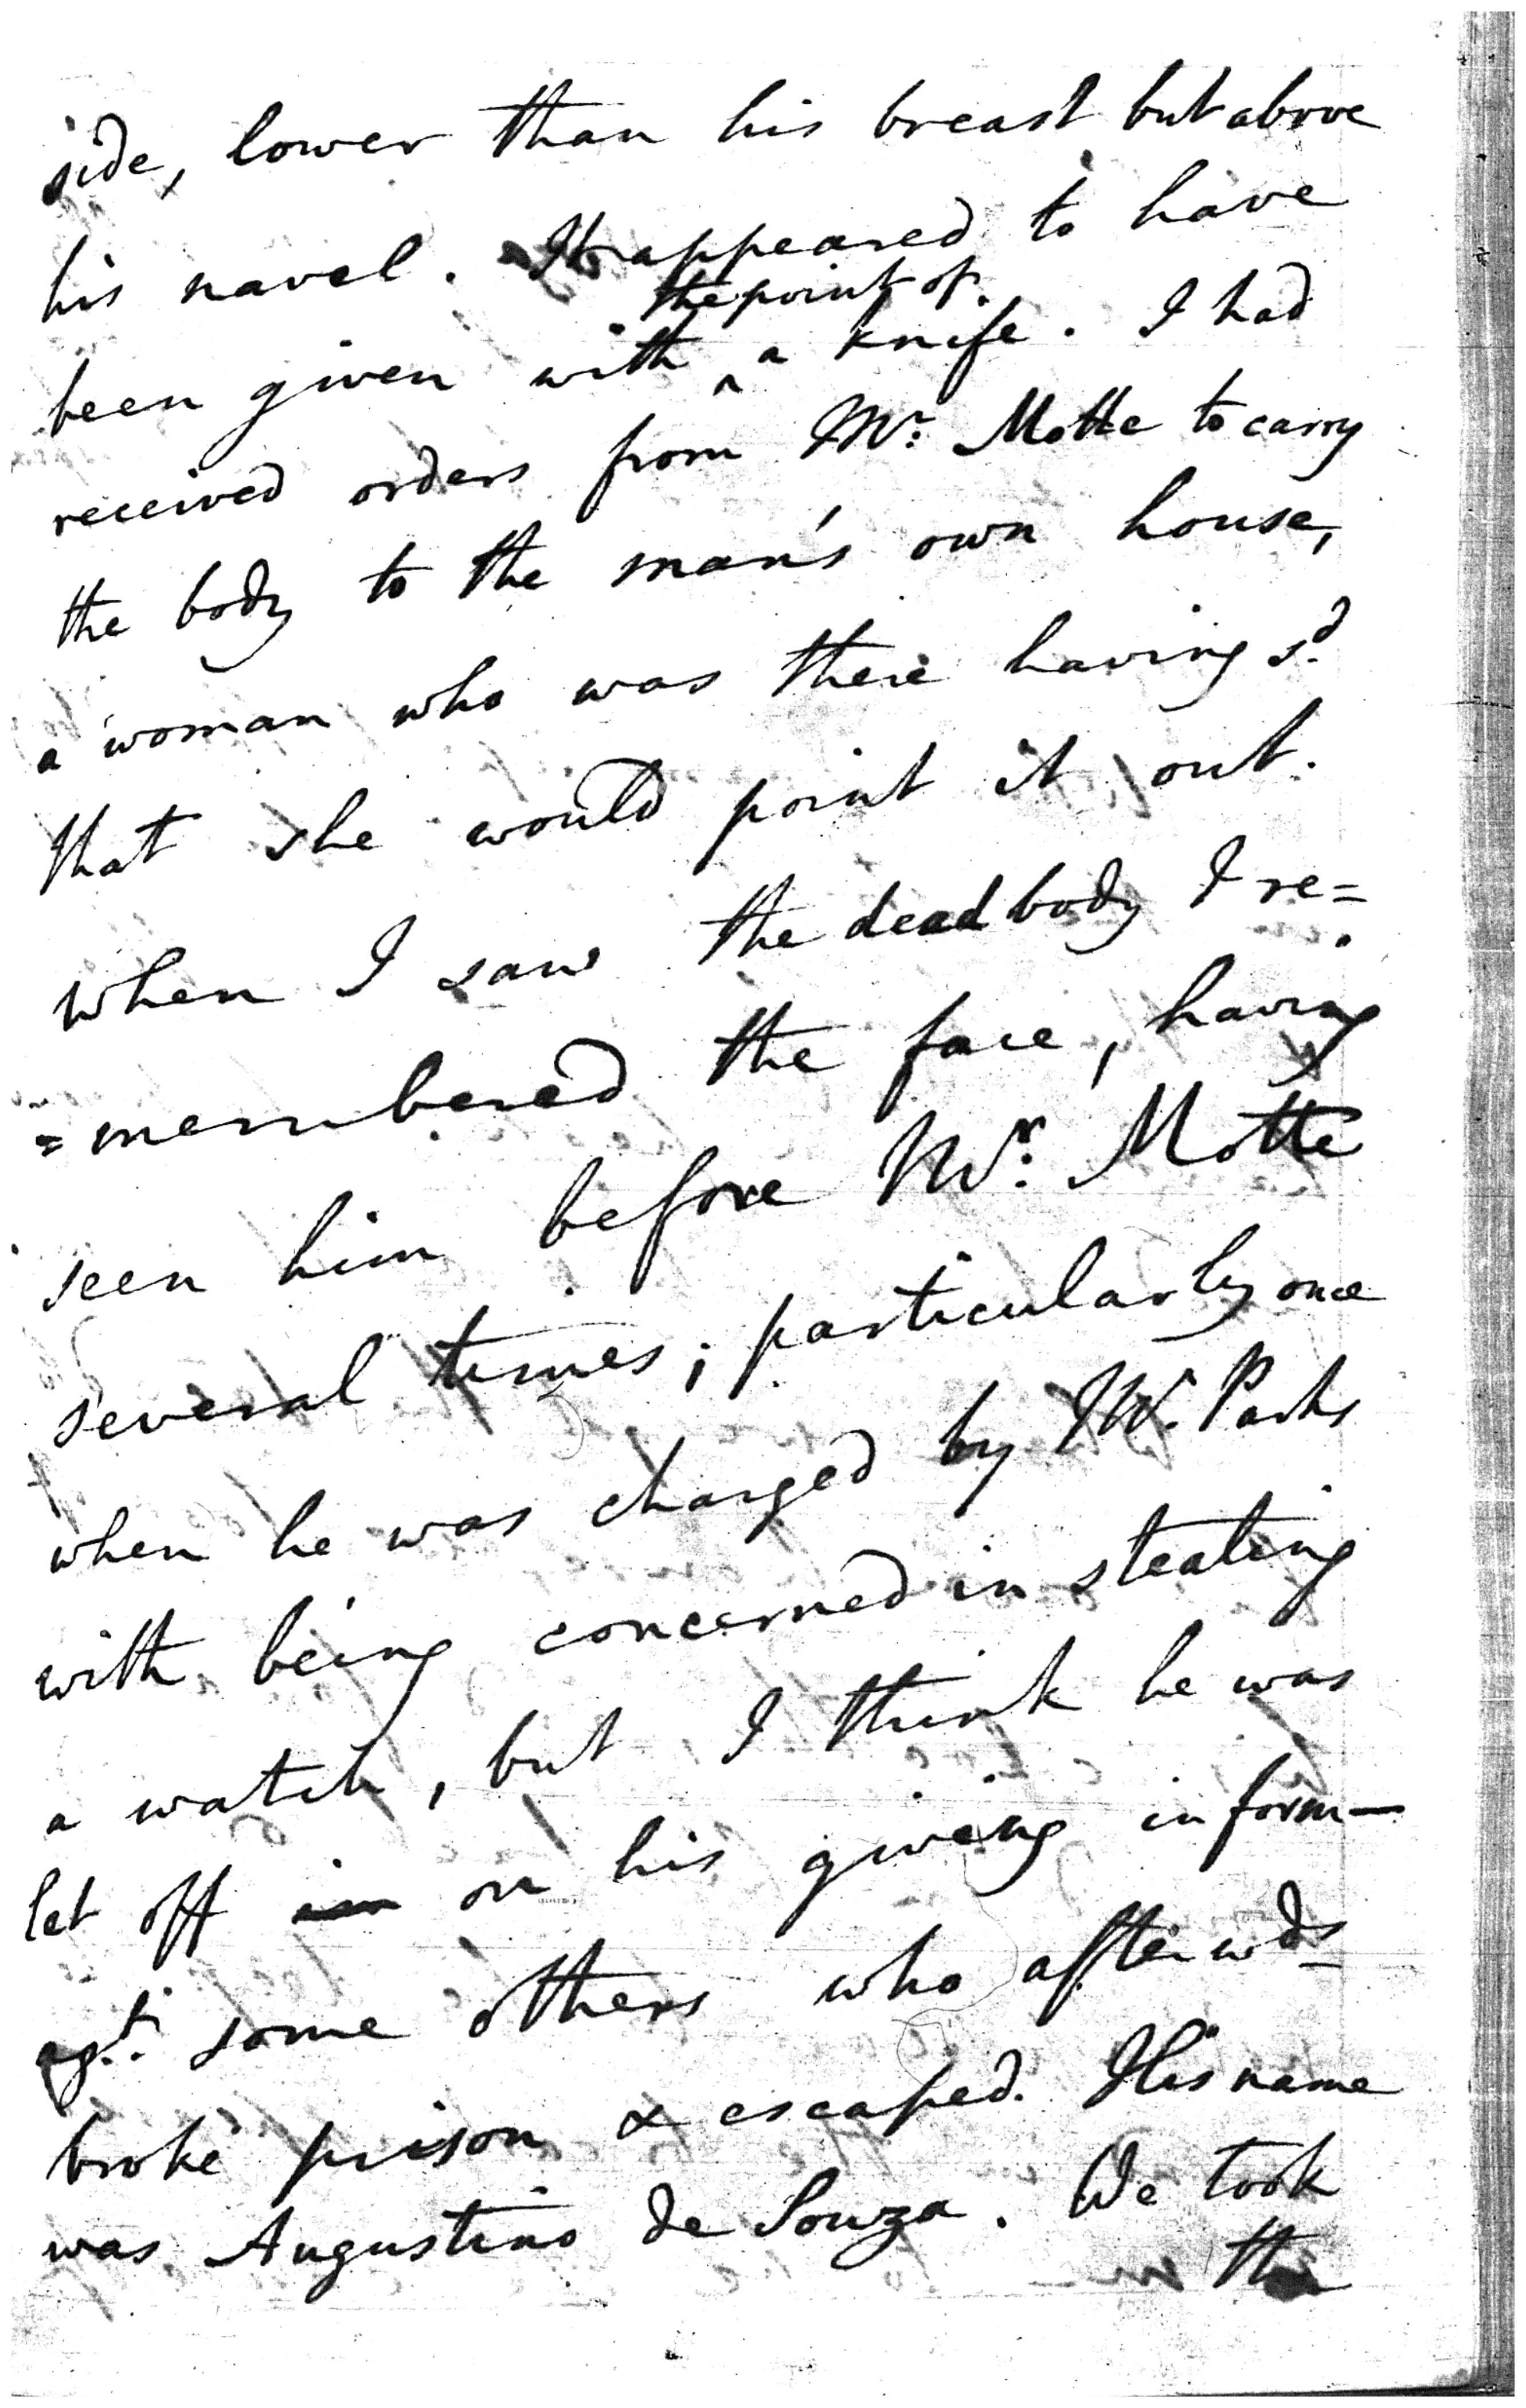 side, lower than his breast but above
his navel. It appeared to have
the point of
been given with ^ a knife. I had
received orders from Mr. Motte to carry
the body to the man's own house,
a woman who was there having sd.
that she would point it out.
when I saw the dead body I re=
=membered the face, having
seen him before Mr. Motte
several times; particularly once
when he was charged by Mr. Parks
with being concerned in stealing
a watch, but I think he was
let off on his giving inform—
agt. some others who afterwds
broke prison & escaped. His name
was Augustino de Souza. We took
the